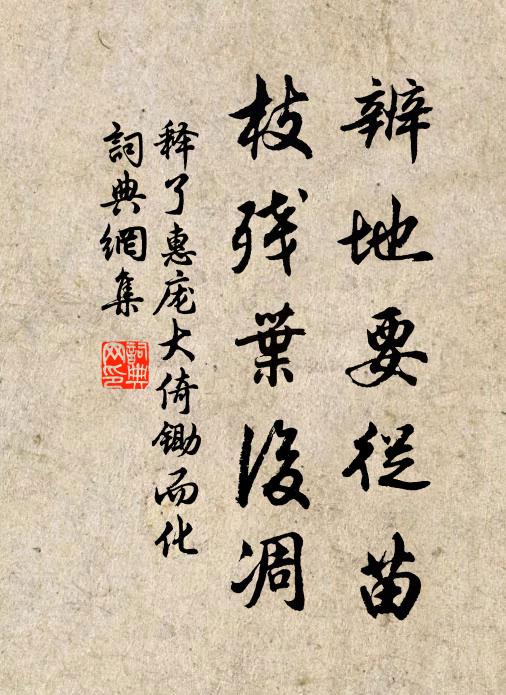 辨地要從苗
枝残葉後凋
释了惠庞大倚锄而化
詞典網集
詞典网印